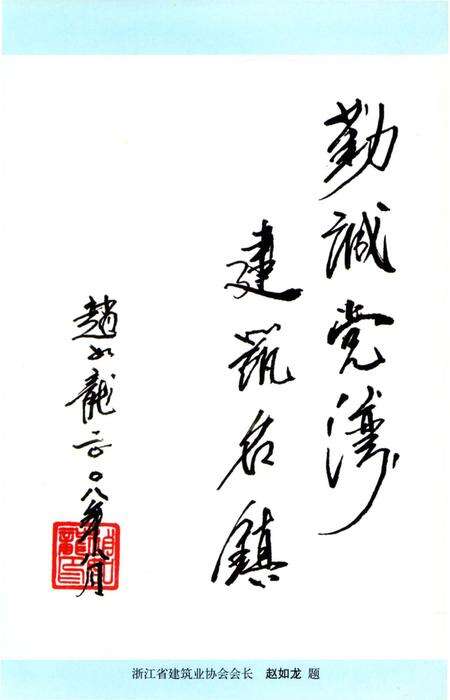 勤誠党湾
建筑名鎮
趙如龍二〇〇八年八月
浙江省建筑业协会会长 赵如龙 题